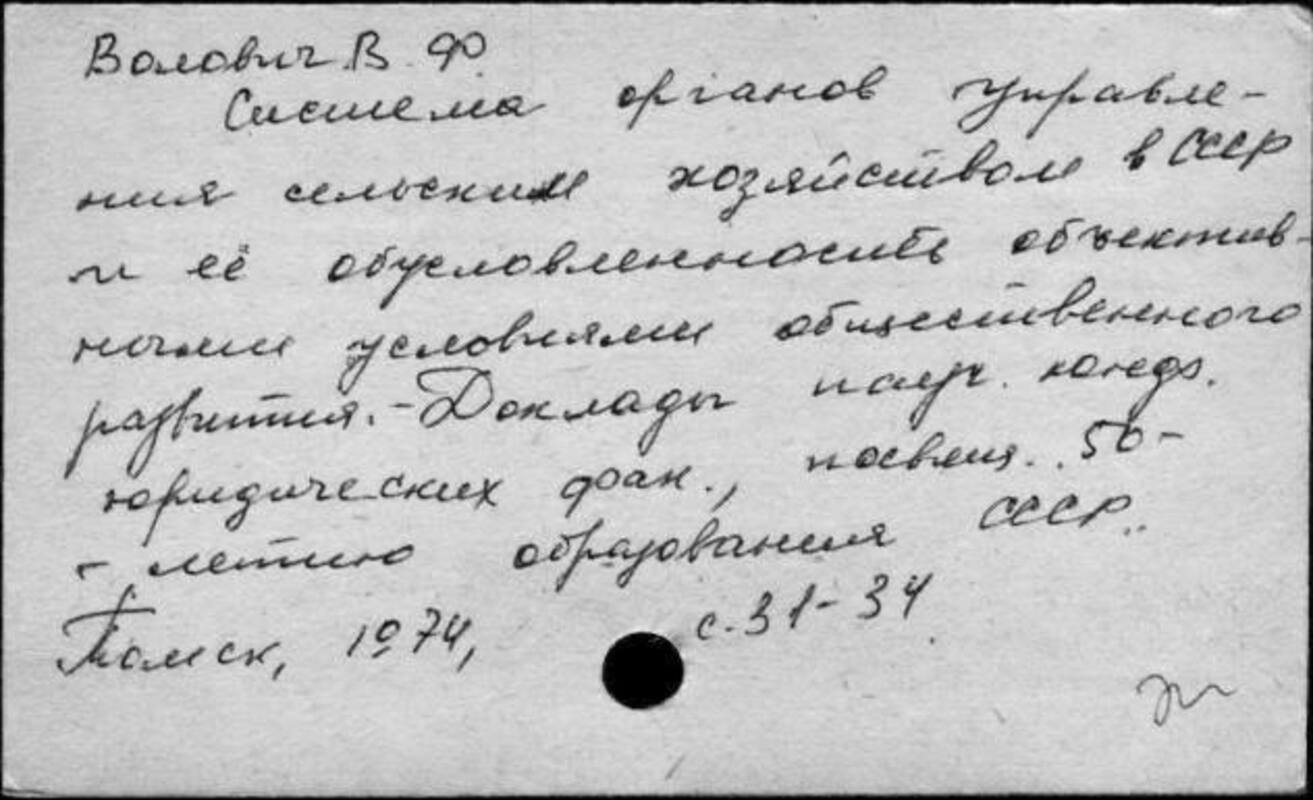 Волович В. Ф.
Система органов управле-
ния сельским хозяйством в СССР
и её обусловленность объектив-
ными условиями общественного
развития. - Доклады научн. конф.
юридических фак., посвящ. 50-
- летию образования СССР.
Томск, 1974, с. 31-34